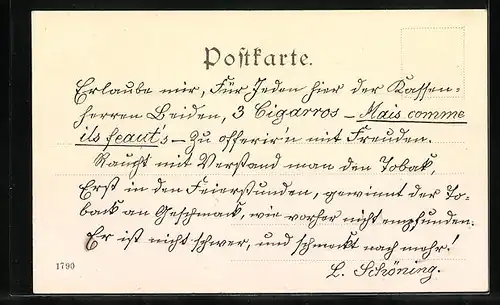 Postkarte.
Erlaube mir, Für Jeden hier der Kassen-
herren Beiden, 3 Cigarros – Mais comme
ils feaut's – Zu offerir'n mit Freuden.
Raucht mit Verstand man den Tobak,
Erst in den Feierstunden, gewinnt der To-
back an Geschmack, wie vorher nicht empfunden.
Er ist nicht schwer, und schmeckt nach mehr!
L. Schöning.
1790